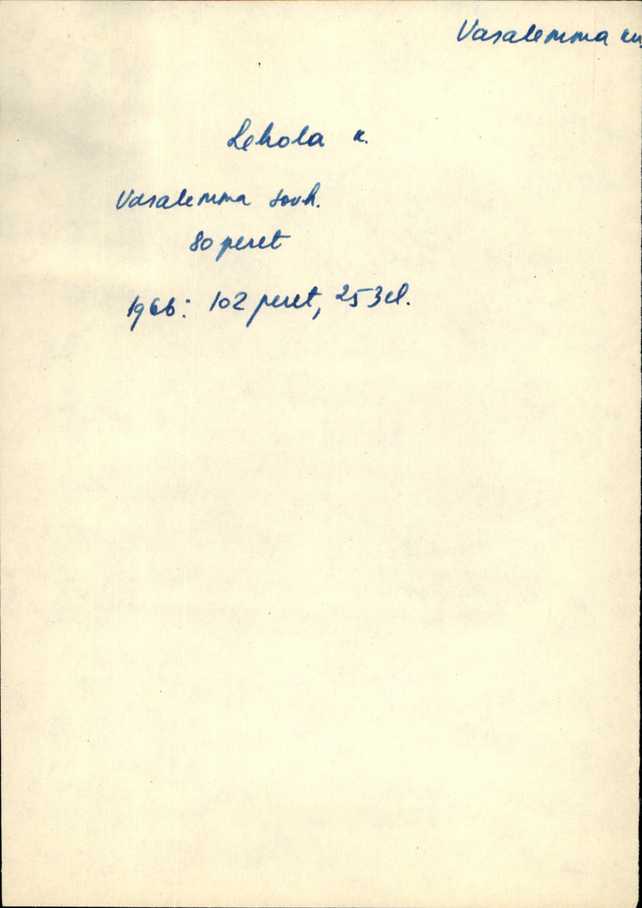 Vasalemma kn
Lehola k.
Vasalemma sovh.
80 peret
1966: 102 peret, 253 el.